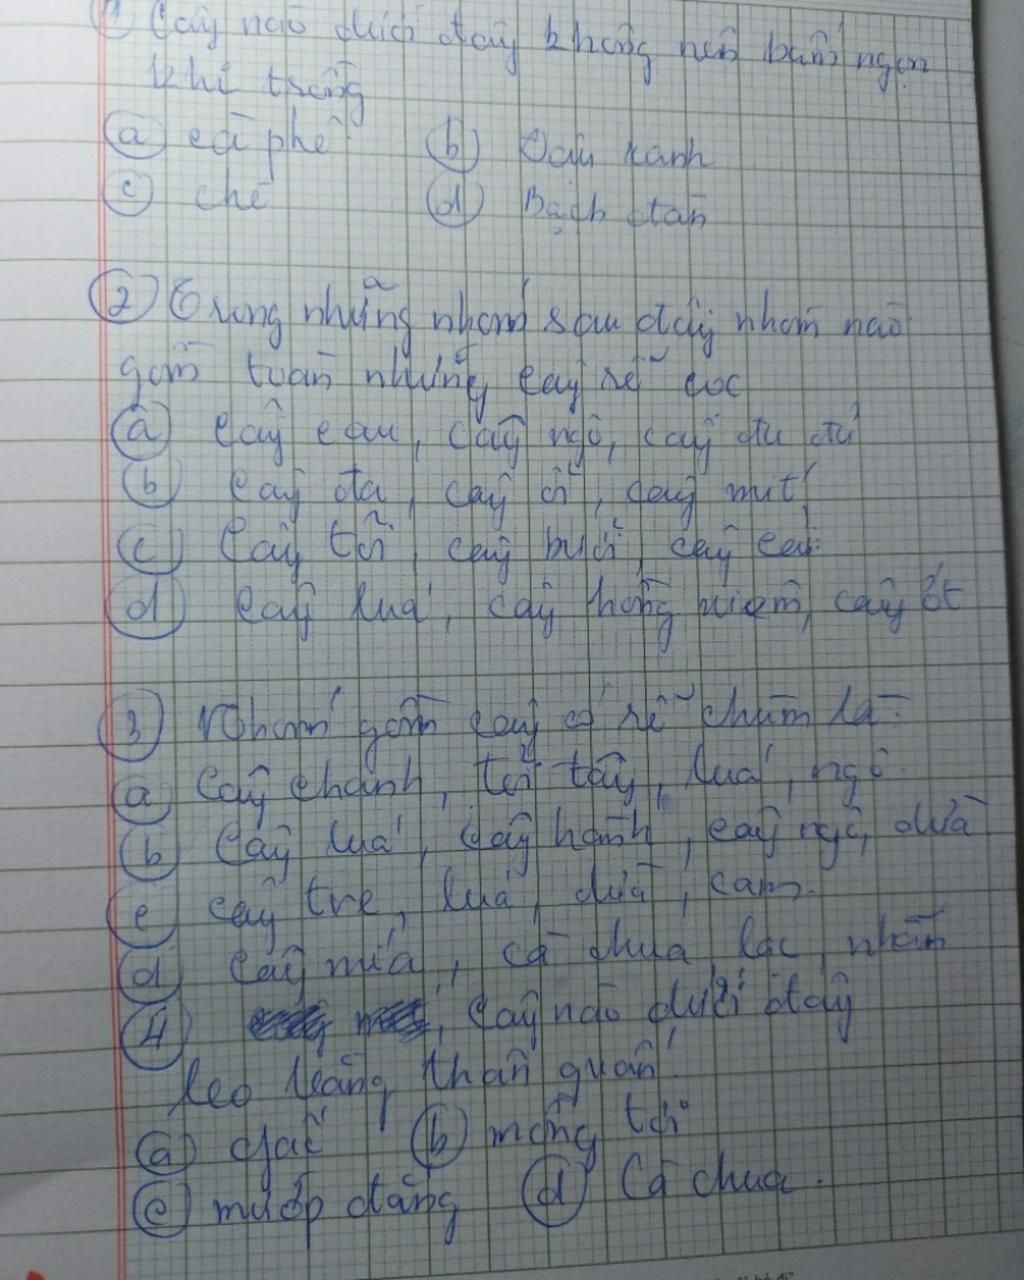 ① Cây nào dưới đây không nên bấm ngọn
khi trồng
ⓐ cà phê ⓑ Đậu xanh
ⓒ chè ⓓ Bạch đàn
② Trong những nhóm sau đây nhóm nào
gồm toàn những cây rễ cọc
ⓐ Cây cau, cây ngô, cây đu đủ
ⓑ Cây đa, cây ổi, cây mít
ⓒ Cây tỏi, cây bưởi, cây cải
ⓓ Cây lúa, cây hồng xiêm, cây ớt
③ Nhóm gồm cây có rễ chùm là:
ⓐ Cây chanh, tỏi tây, lúa, ngô.
ⓑ Cây lúa, cây hành, cây ngô, dừa
ⓒ cây tre, lúa, dừa, cam.
ⓓ Cây mía, cà chua, lạc, nhãn
④ , Cây nào dưới đây
leo bằng thân quấn
ⓐ gấc ⓑ mồng tơi
ⓒ mướp đắng ⓓ Cà chua.